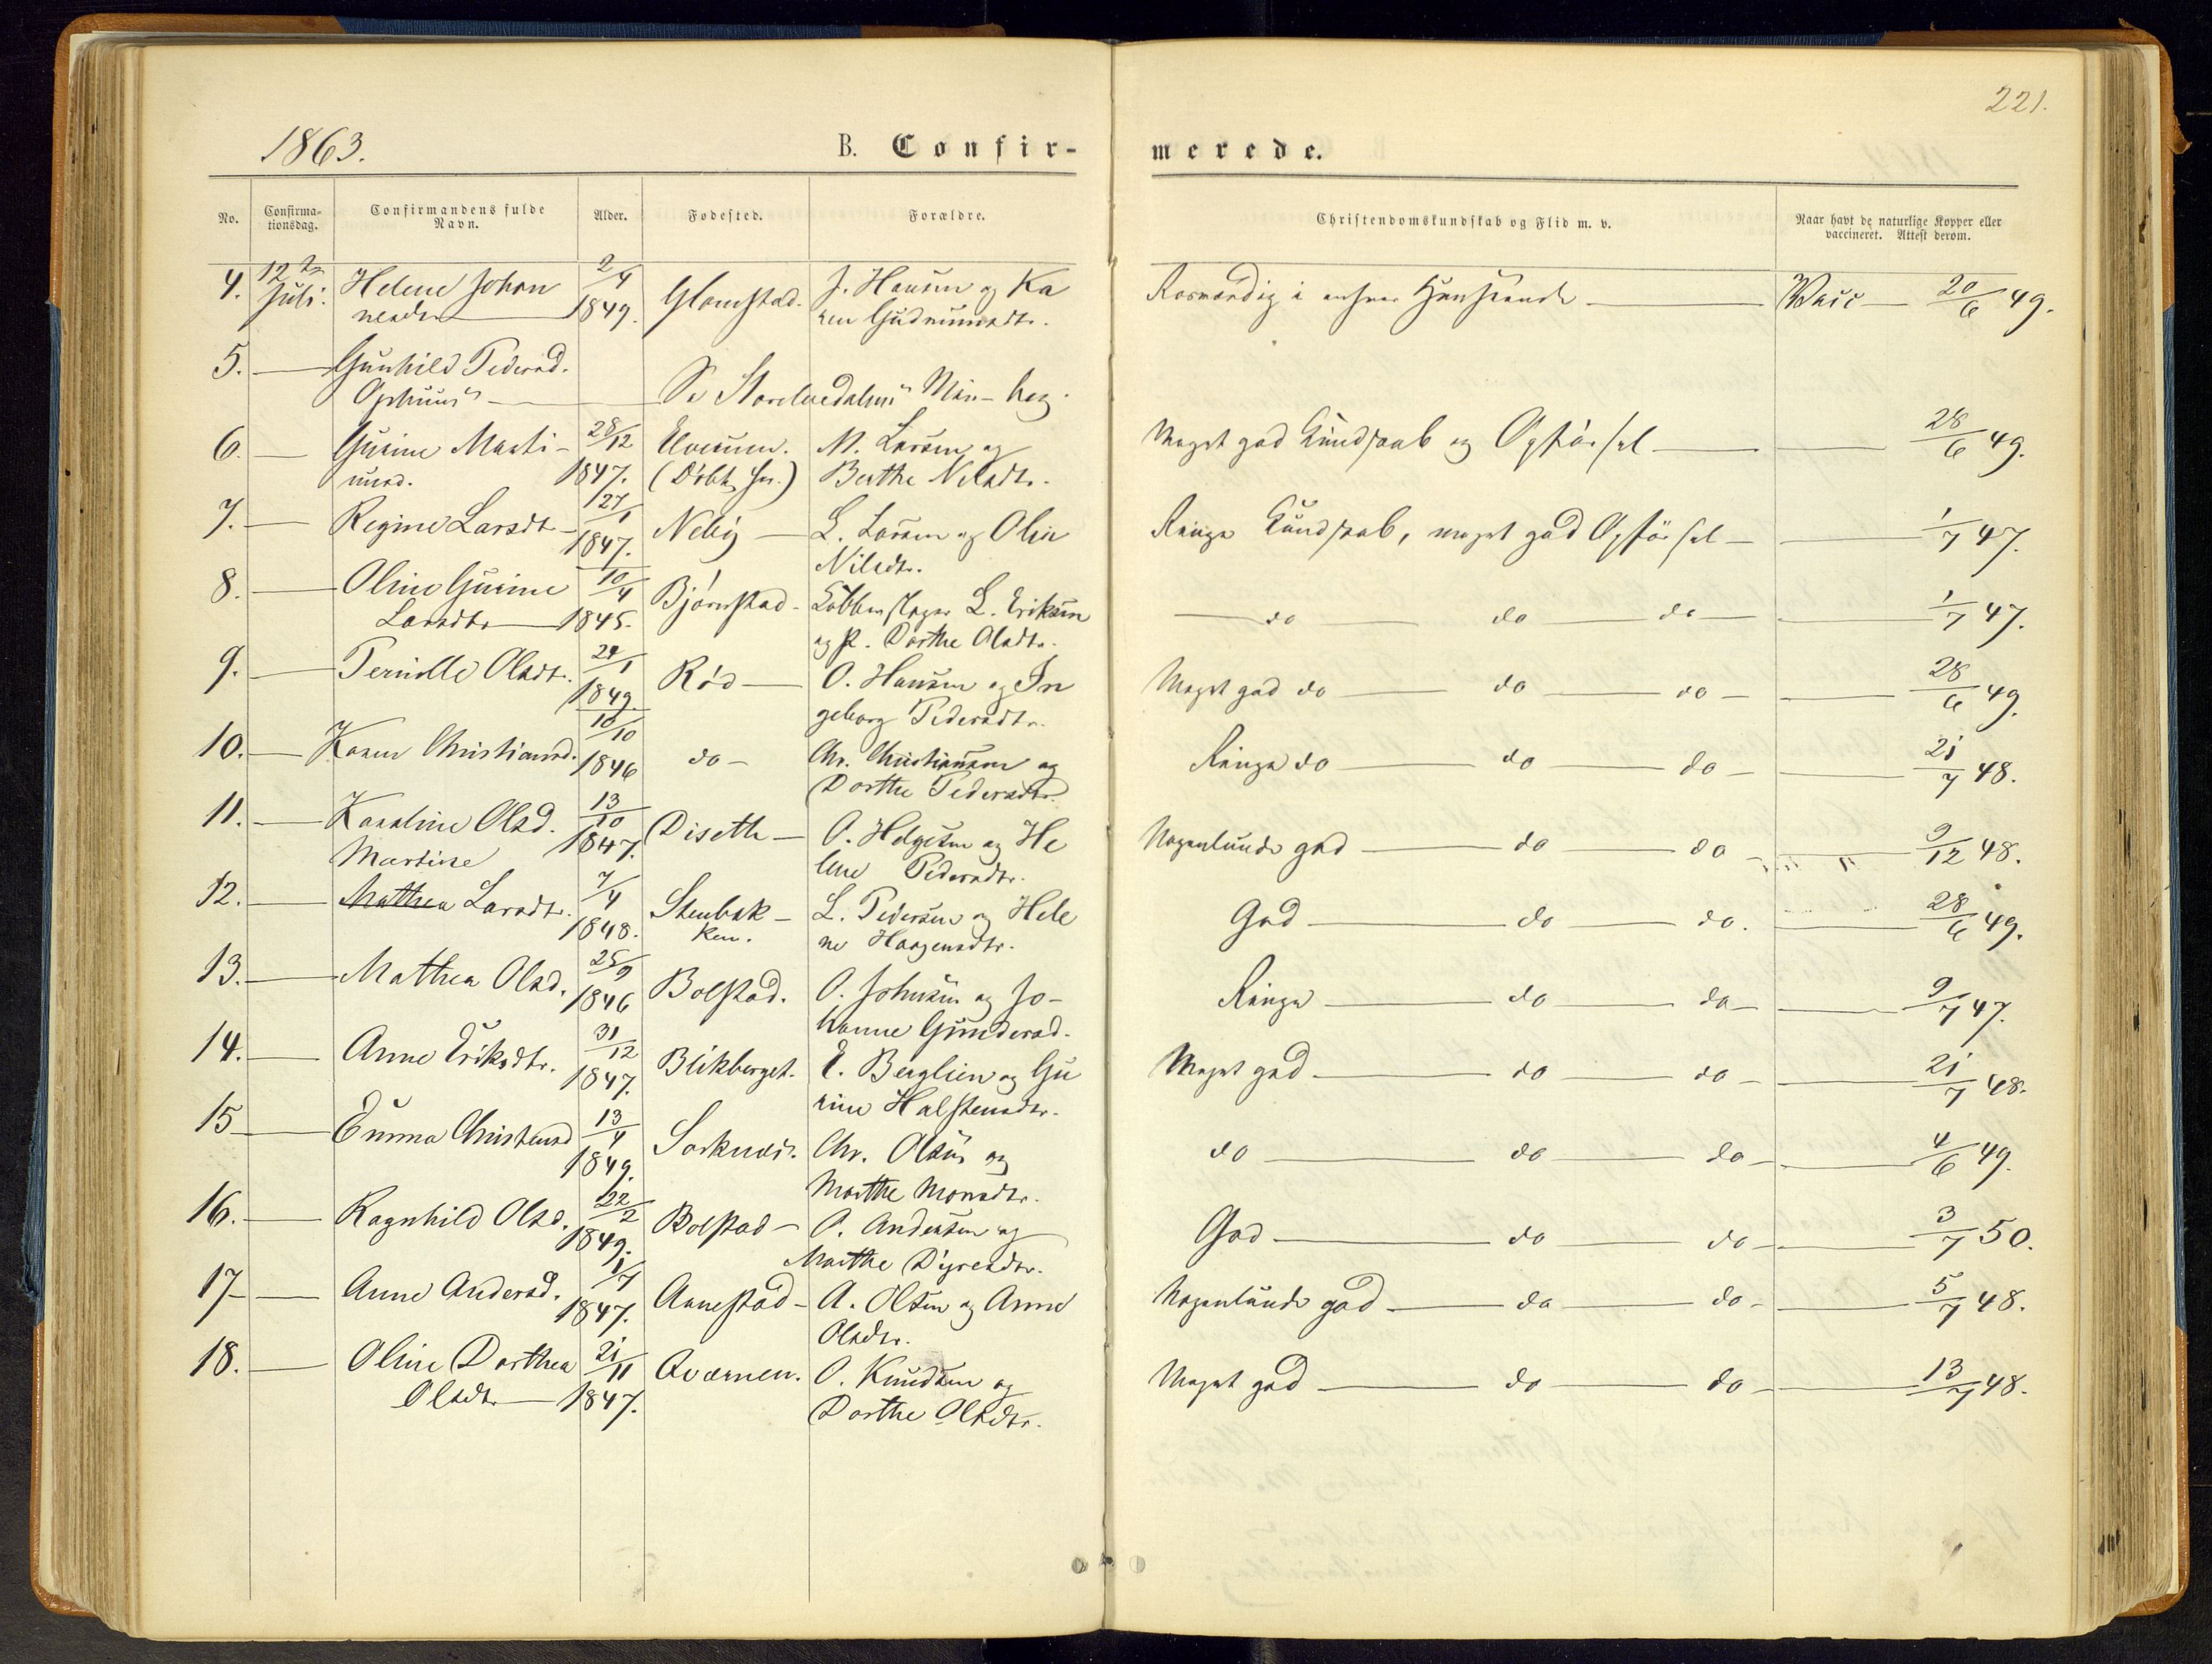 221.
1863. B. Confir- merede.
No. Confirma- Confirmandens fulde Alder. Fodested. Forældre. Christendomskundskab og Flid m. v. Naar havt de naturlige Kopper eller
tionsdag. Navn. vaccineret. Attest derom.
4. 12te Helene Johan 2/4 Glomstad. J. Hansen og Ka Rosværdig i enhver Henseende Vacc 20/6 49.
Juli. nesdr 1849. ren Gudmunsdtr.
5. Gunhild Pedersd.
Ophuus Se Storelvedalens Min- bog.
6. Gurine Marti- 28/12 Elverum. M. Larsen og Meget god Kundskab og Opførsel 28/6 49.
nusd. 1847. (Døbt her.) Berthe Nilsdtr.
7. Regine Larsdt. 27/1 Neby L. Larsen og Olia Ringe Kundskab, meget god Opførsel 1/7 47.
1847. Nilsdtr.
8. Oline Gurine 10/4 Bjørnstad L. Eriksen do do do 1/7 47.
Larsdtr 1845. og Dorthe Olsdtr.
9. Pernille Olsdt. 24/1 Rød O. Hansen og In Meget god do do do 28/6 49.
1849. geborg Pedersdtr.
10. Karen Christiansd. 10/10 do Chr. Christiansen og Ringe do do do 21/7 48.
1846 Dorthe Pedersdtr.
11. Karoline Olsd. 13/10 Diseth O. Helgesen og He Nogenlunde god do do 9/12 48.
Martine 1847. lene Pedersdtr.
12. Mathea Larsdtr. 7/4 Stenbak- L. Pedersen og Hele God do do. 28/6 49.
1848. ken. ne Haagensdtr.
13. Mathea Olsd. 25/9 Bolstad. O. Johnsen og Jo- Ringe do do 9/7 47.
1846 hanne Gundersd.
14. Anne Eriksdtr. 31/12 Blikberget. E. Berglien og Gu Meget god do do 21/7 48.
1847. rine Halstensdtr.
15 Emma Christensd 13/4 Sorknæs. Chr. Olsen og do do do 4/6 49.
1849. Marthe Monsdtr.
16. Ragnhild Olsd. 22/2 Bolstad O. Andersen og God do do 3/7 50.
1849. Marthe Dyresdtr.
17 Anne Andersd. 1/7 Arnestad A. Olsen og Anne Nogenlunde god do do 5/7 48.
1847. Olsdtr.
18. Oline Dorthea 21/11 Qværnen. O. Knudsen og Meget god do do 13/7 48.
Olsdtr 1847. Dorthe Olsdtr.